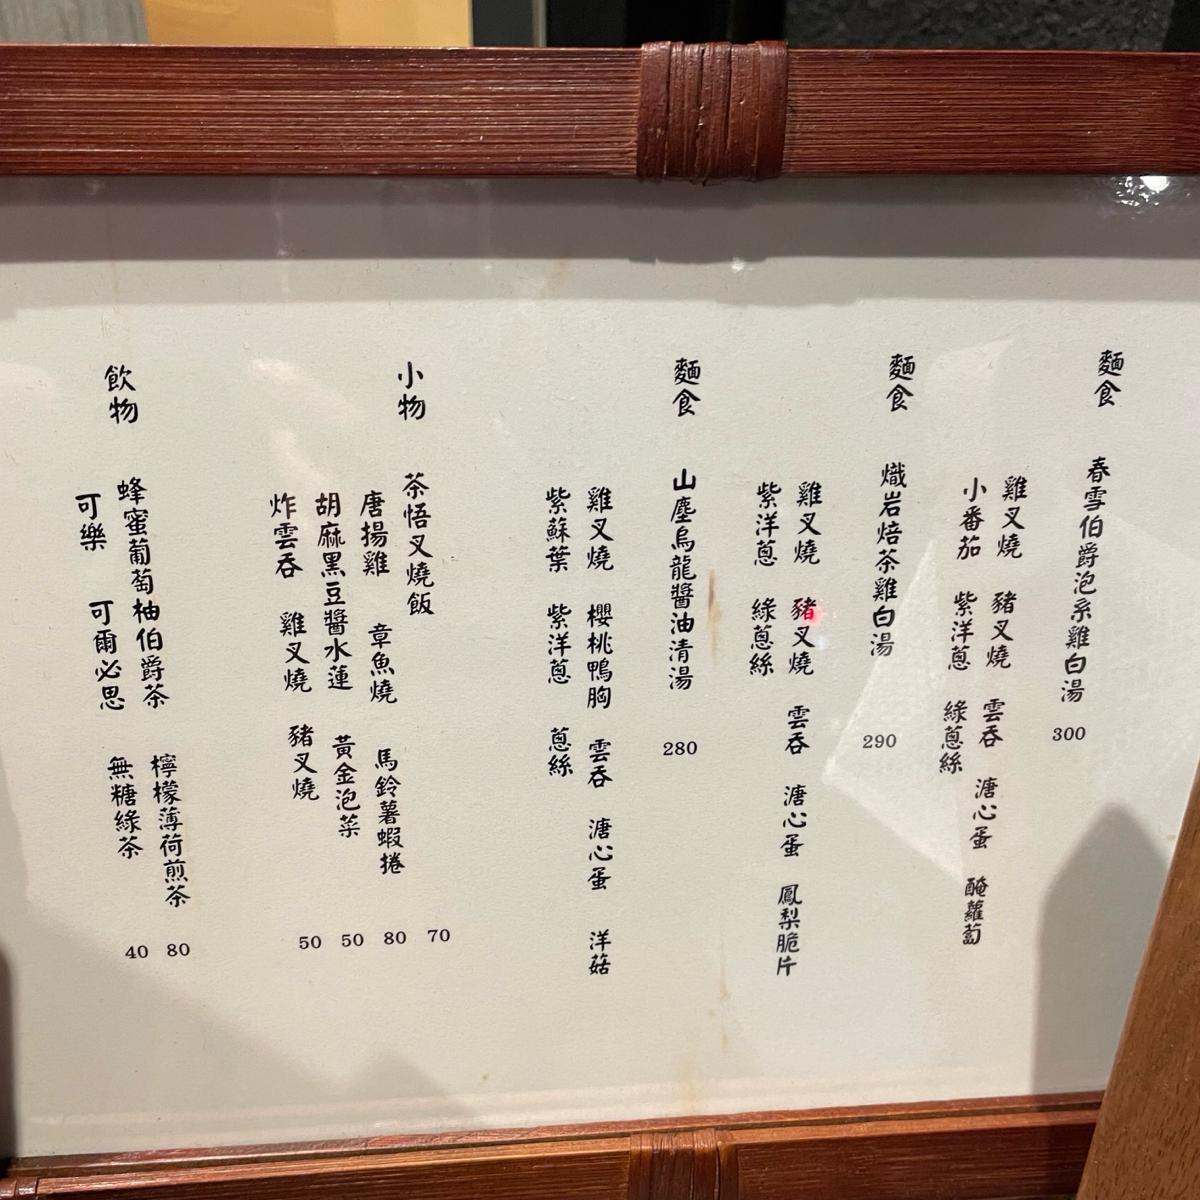 麵食 春雪伯爵泡系雞白湯 300
雞叉燒 豬叉燒 雲吞 溏心蛋 醃蘿蔔
小番茄 紫洋蔥 綠蔥絲
麵食 熾岩焙茶雞白湯 290
雞叉燒 豬叉燒 雲吞 溏心蛋 鳳梨脆片
紫洋蔥 綠蔥絲
麵食 山塵烏龍醬油清湯 280
雞叉燒 櫻桃鴨胸 雲吞 溏心蛋 洋菇
紫蘇葉 紫洋蔥 蔥絲
小物 茶悟叉燒飯 70
唐揚雞 章魚燒 馬鈴薯蝦捲 80
胡麻黑豆醬水蓮 黃金泡菜 50
炸雲吞 雞叉燒 豬叉燒 50
飲物 蜂蜜葡萄柚伯爵茶 檸檬薄荷煎茶 80
可樂 可爾必思 無糖綠茶 40